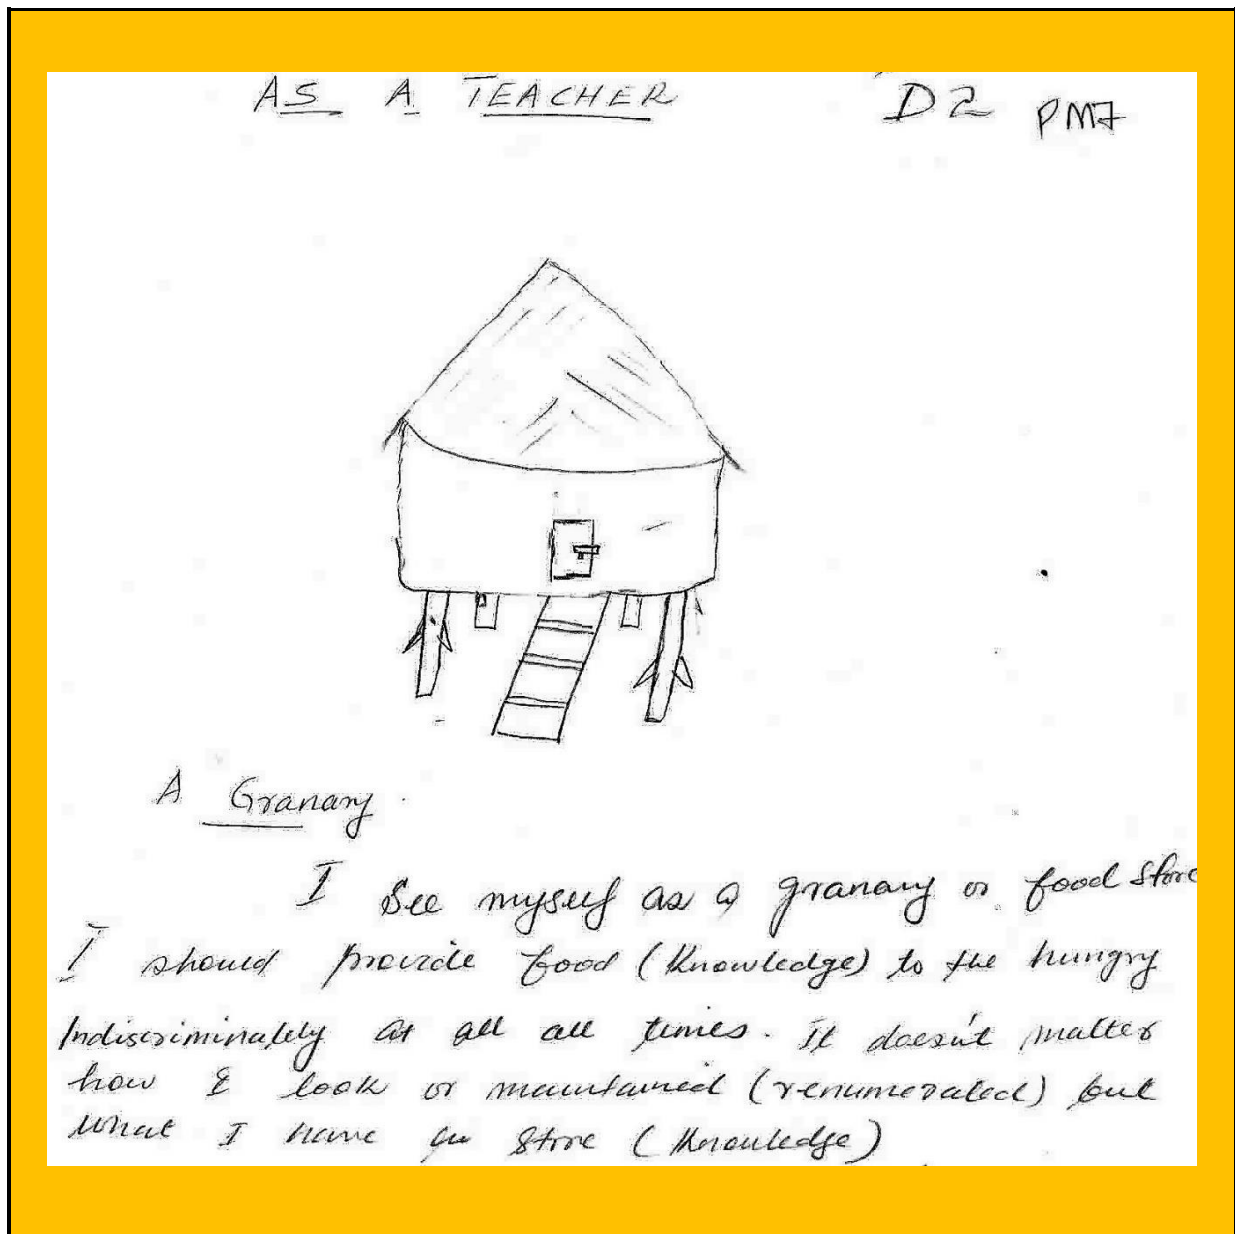 AS A TEACHER D2 PM7
A Granary
I See myself as a granary or food Store
I should provide food (Knowledge) to the hungry
Indiscriminately at all all times. It doesn't matter
how I look or maintained (renumerated) but
what I have in Store (Knowledge)